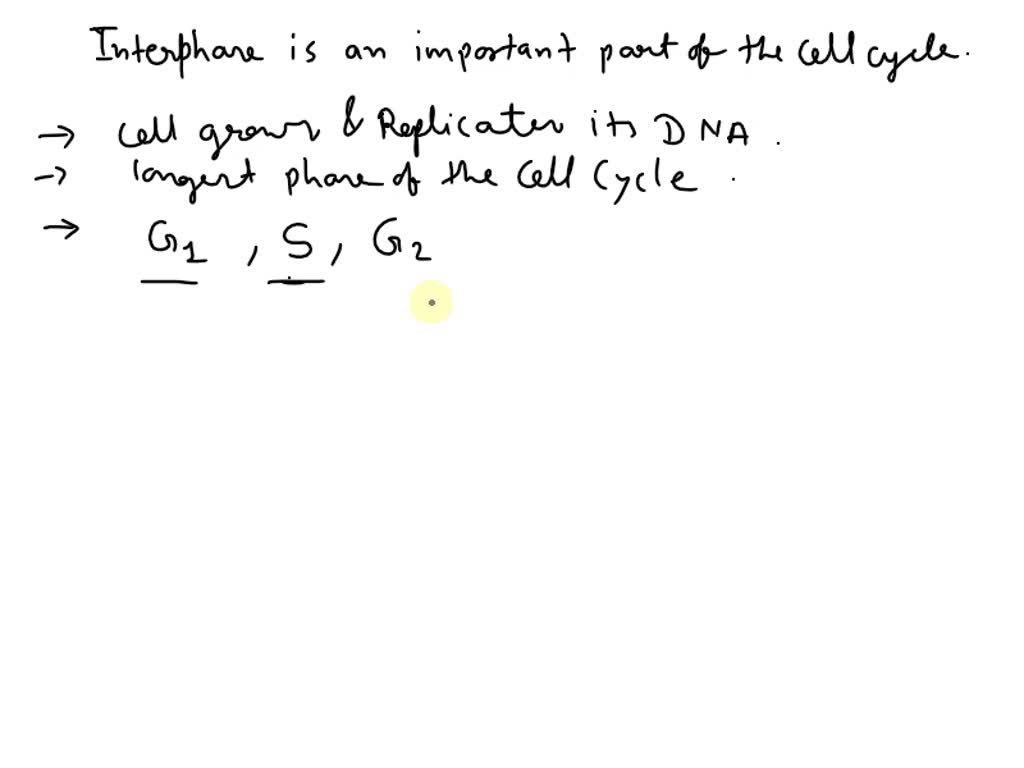 Interphase is an important part of the cell cycle.
→ cell grows & Replicates its DNA .
→ longest phase of the cell Cycle .
→ G1 , S , G2